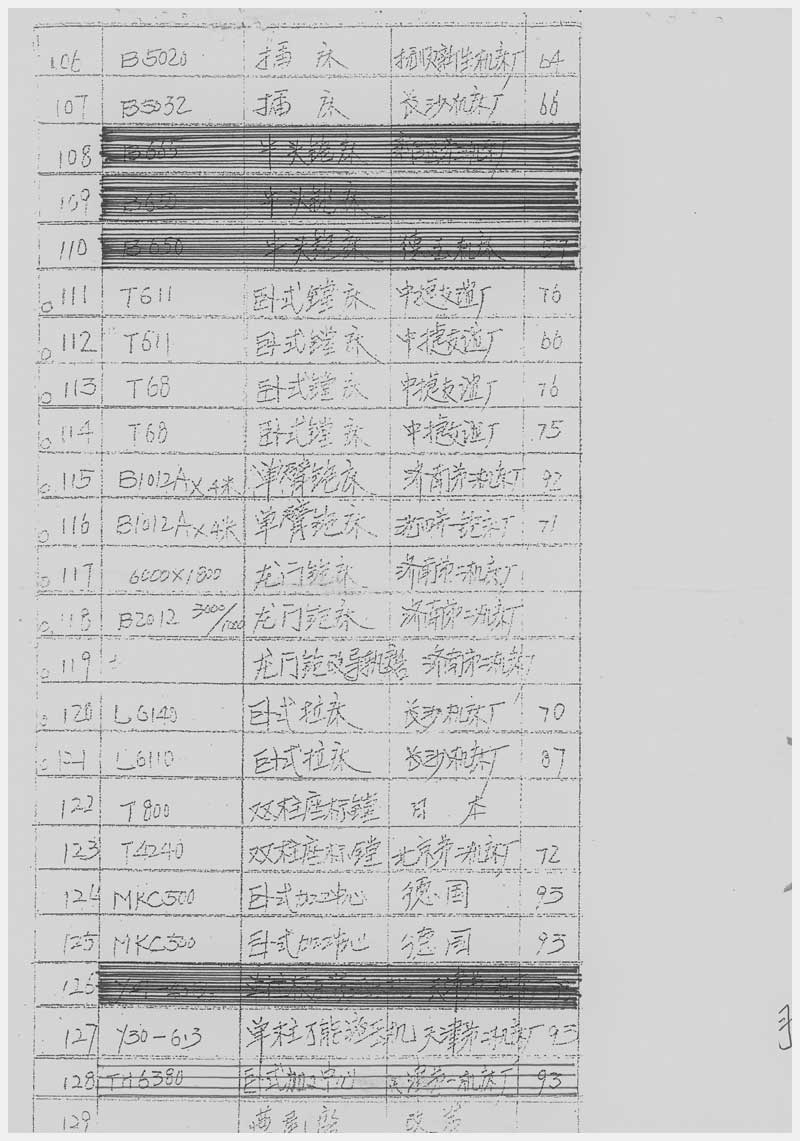 106 B5020 插床 抚顺新生机床厂 64
107 B5032 插床 长沙机床厂 66
108 B665 牛头铇床
109 B650 牛头铇床
110 B650 牛头铇床 机床 67
111 T611 卧式镗床 中捷友谊厂 76
112 T611 卧式镗床 中捷友谊厂 66
113 T68 卧式镗床 中捷友谊厂 76
114 T68 卧式镗床 中捷友谊厂 75
115 B1012A×4米 单臂铇床 济南第二机床厂 92
116 B1012A×4米 单臂铇床 铇床厂 71
117 6000×1800 龙门铇床 济南第二机床厂
118 B2012 3000/1000 龙门铇床 济南第二机床厂
119 龙门铇改导轨磨 济南第二机床厂
120 L6140 卧式拉床 长沙机床厂 70
121 L6110 卧式拉床 长沙机床厂 87
122 T800 双柱座标镗 日本
123 T4240 双柱座标镗 北京第一机床厂 72
124 MKC500 卧式加工中心 德国 93
125 MKC500 卧式加工中心 德国 93
126
127 Y30-6.3 单柱万能液压机 天津第二机床厂 93
128 TH6380 卧式加工中心 机床厂 93
129 改装